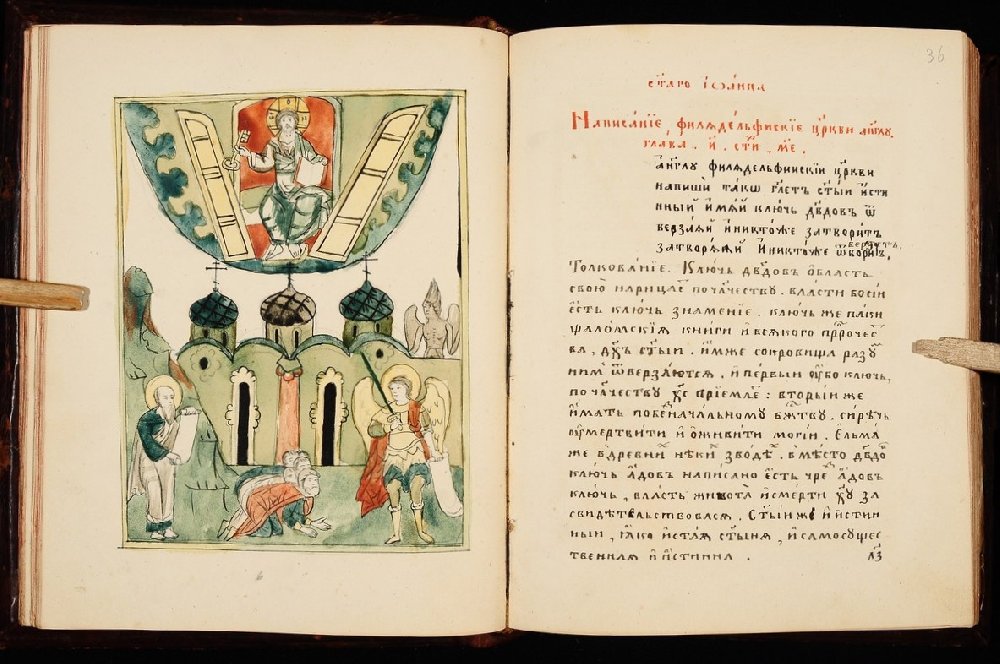 36
ст҃аго їѡ҆а́нна
Написа́нїе, филаде́льфискїе цр҃кви а҆́нг҃лу
глава . и҃ . сти́ . м҃е .
а҆́нг҃лу филаде́льфиискїи цр҃кви
напишѝ та́кѡ гл҃етъ ст҃ы́и и҆́сти
нныи и҆мѣ́ѧи ключь дв҃довъ ѿ
верза́ѧи и҆ никто́же затворитъ
затворѧ́ѧи и҆ никто́же
Толкова́нїе. Клю́чь дв҃довъ о҆́бласть
свою̀ нарица́етъ по чл҃честву. вла́сти бо си́и
є҆́сть клю́чь зна́менїе. клю́чь же па́ки
ѱало́мскїѧ кни́ги и҆ всѧ́кого прⷪ҇ро́чес
ва, дх҃ъ ст҃ы́и. и҆́мже сокро́вища ра́зу
ним ѿверза́ютсѧ. и҆ пе́рвыи ᲂу҆́бо клю́чь,
по чл҃честву хс҃ прїе́млетъ: вторы́и же
и҆́мать по безнача́лному бж҃тву. си́рѣчь
ᲂу҆мертви́ти и҆ ѡ҆живи́ти моги́и. Е҆льма́
же в дре́вни нѣ́ки зво́дѣ. в мѣ́сто дв҃до
клю́чь а҆́довъ напи́сано є҆́сть чре а҆́довъ
клю́чь, вла́сть живота̀ и҆ сме́рти хр҃у за
свидѣ́телствовасѧ. Ст҃ы́и же и҆ и҆́стин
ныи, ꙗ҆́ко и҆́стаѧ ст҃ы́нѧ, и҆ самосу́щес
твеннаѧ и҆ и҆́стинна .
а҆́з